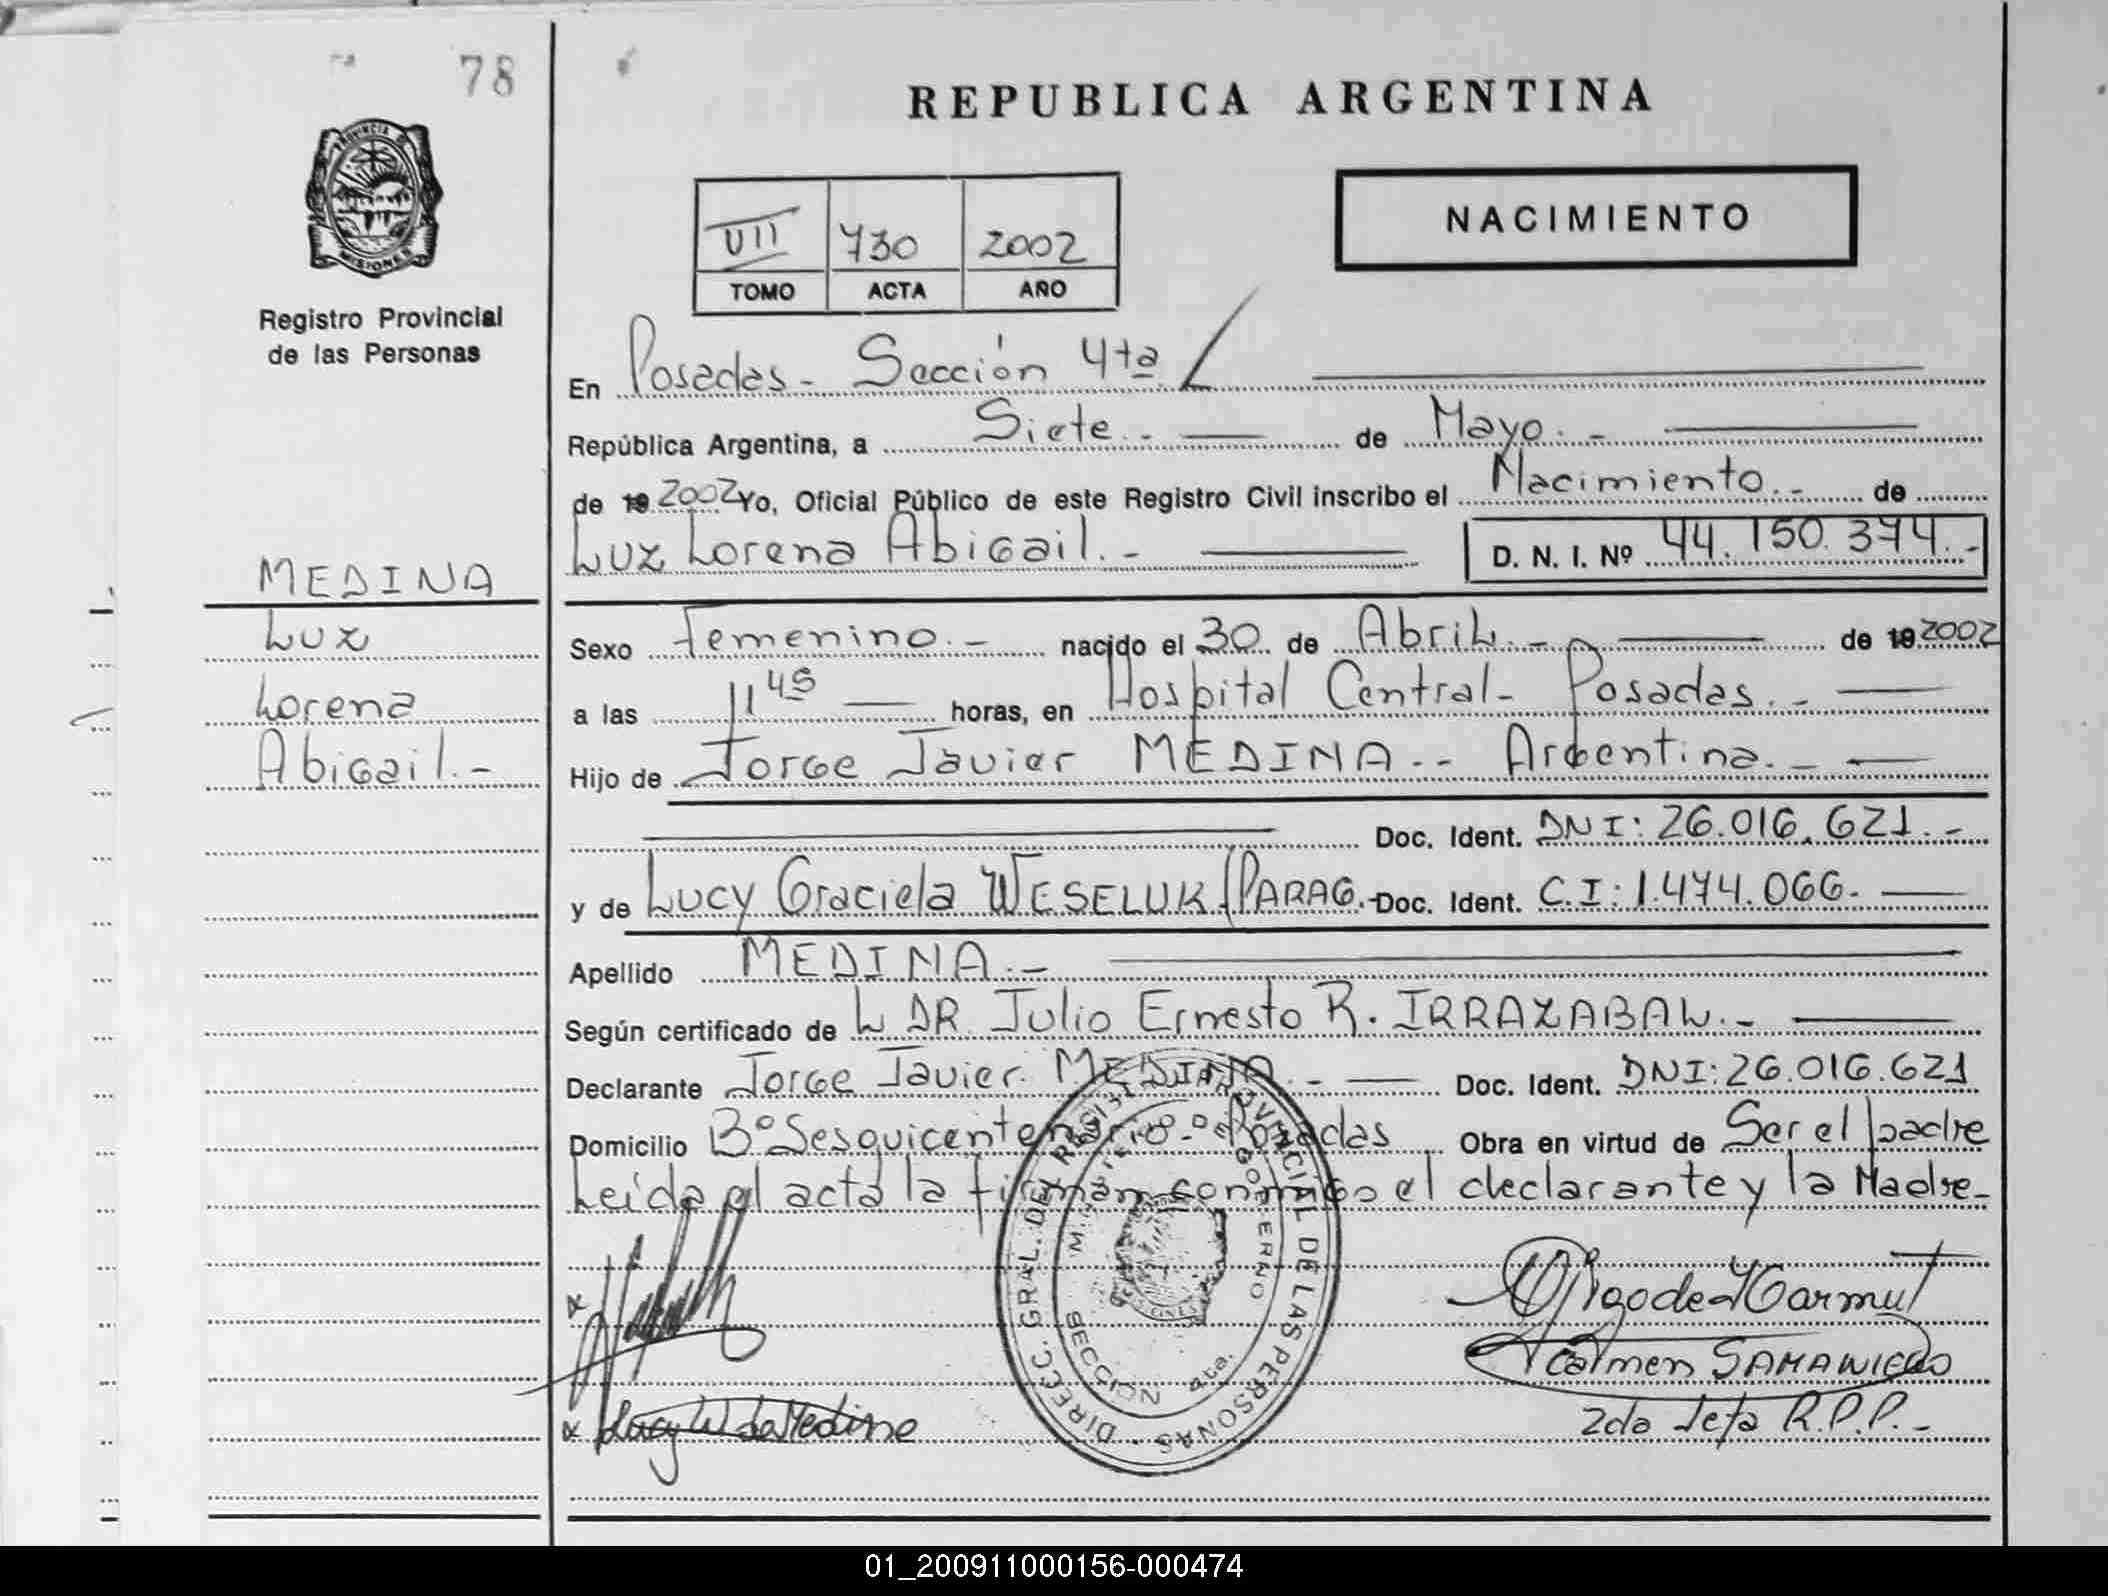 78
REPUBLICA ARGENTINA
PROVINCIA DE
MISIONES
Registro Provincial
de las Personas
VII 730 2002
TOMO ACTA AÑO
NACIMIENTO
En Posadas - Sección 4ta
República Argentina, a Siete.- de Mayo.-
de 19 2002 Yo, Oficial Público de este Registro Civil inscribo el Nacimiento.- de
Luz Lorena Abigail.- D. N. I. Nº 44.150.374.-
MEDINA
Luz
Lorena
Abigail.-
Sexo Femenino.- nacido el 30 de Abril.- de 19 2002
a las 11 45 horas, en Hospital Central- Posadas.-
Hijo de Jorge Javier MEDINA.- Argentina.-
Doc. Ident. DNI: 26.016.621.-
y de Lucy Graciela WESELUK (PARAG.- Doc. Ident. C.I: 1.474.066.-
Apellido MEDINA.-
Según certificado de L DR. Julio Ernesto R. IRRAZABAL.-
Declarante Jorge Javier MEDINA.- Doc. Ident. DNI: 26.016.621
Domicilio Bº Sesquicentenario.- Posadas Obra en virtud de Ser el padre
Leida el acta la firman conmigo el declarante y la Madre-
DIRECC. GRAL. DEL REGISTRO PROVINCIAL DE LAS PERSONAS
MINISTERIO DE GOBIERNO
SECCION 4ta.
Lucy W de Medina
Carmen SAMANIEGO
2da Jefa R.P.P.-
01_200911000156-000474